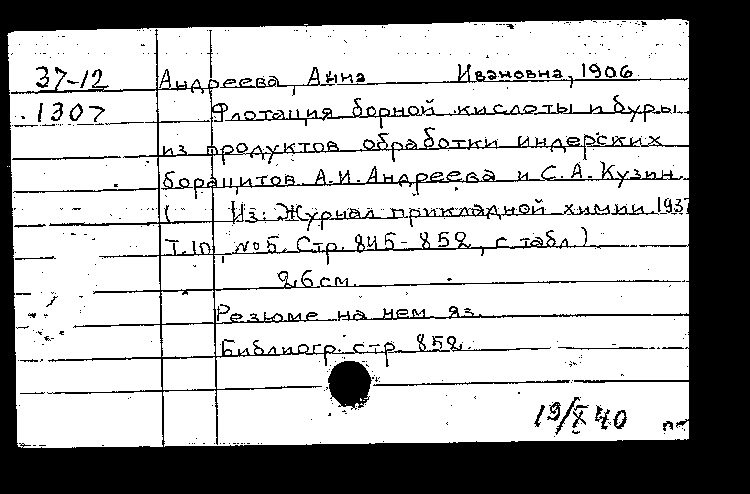 37-12 Андреева, Анна Ивановна, 1906
1307 Флотация борной кислоты и буры
из продуктов обработки индерских
борацитов. А.И. Андреева и С.А. Кузин.
( Из: Журнал прикладной химии. 1937
Т. 10, №5. Стр. 845-852, с табл.)
26 см.
Резюме на нем яз.
Библиогр. стр. 852.
19/X 40